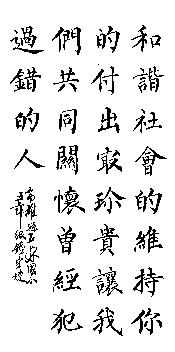 和諧社會的維持你
的付出冣珍貴讓我
們共同關懷曾經犯
過錯的人
高雄